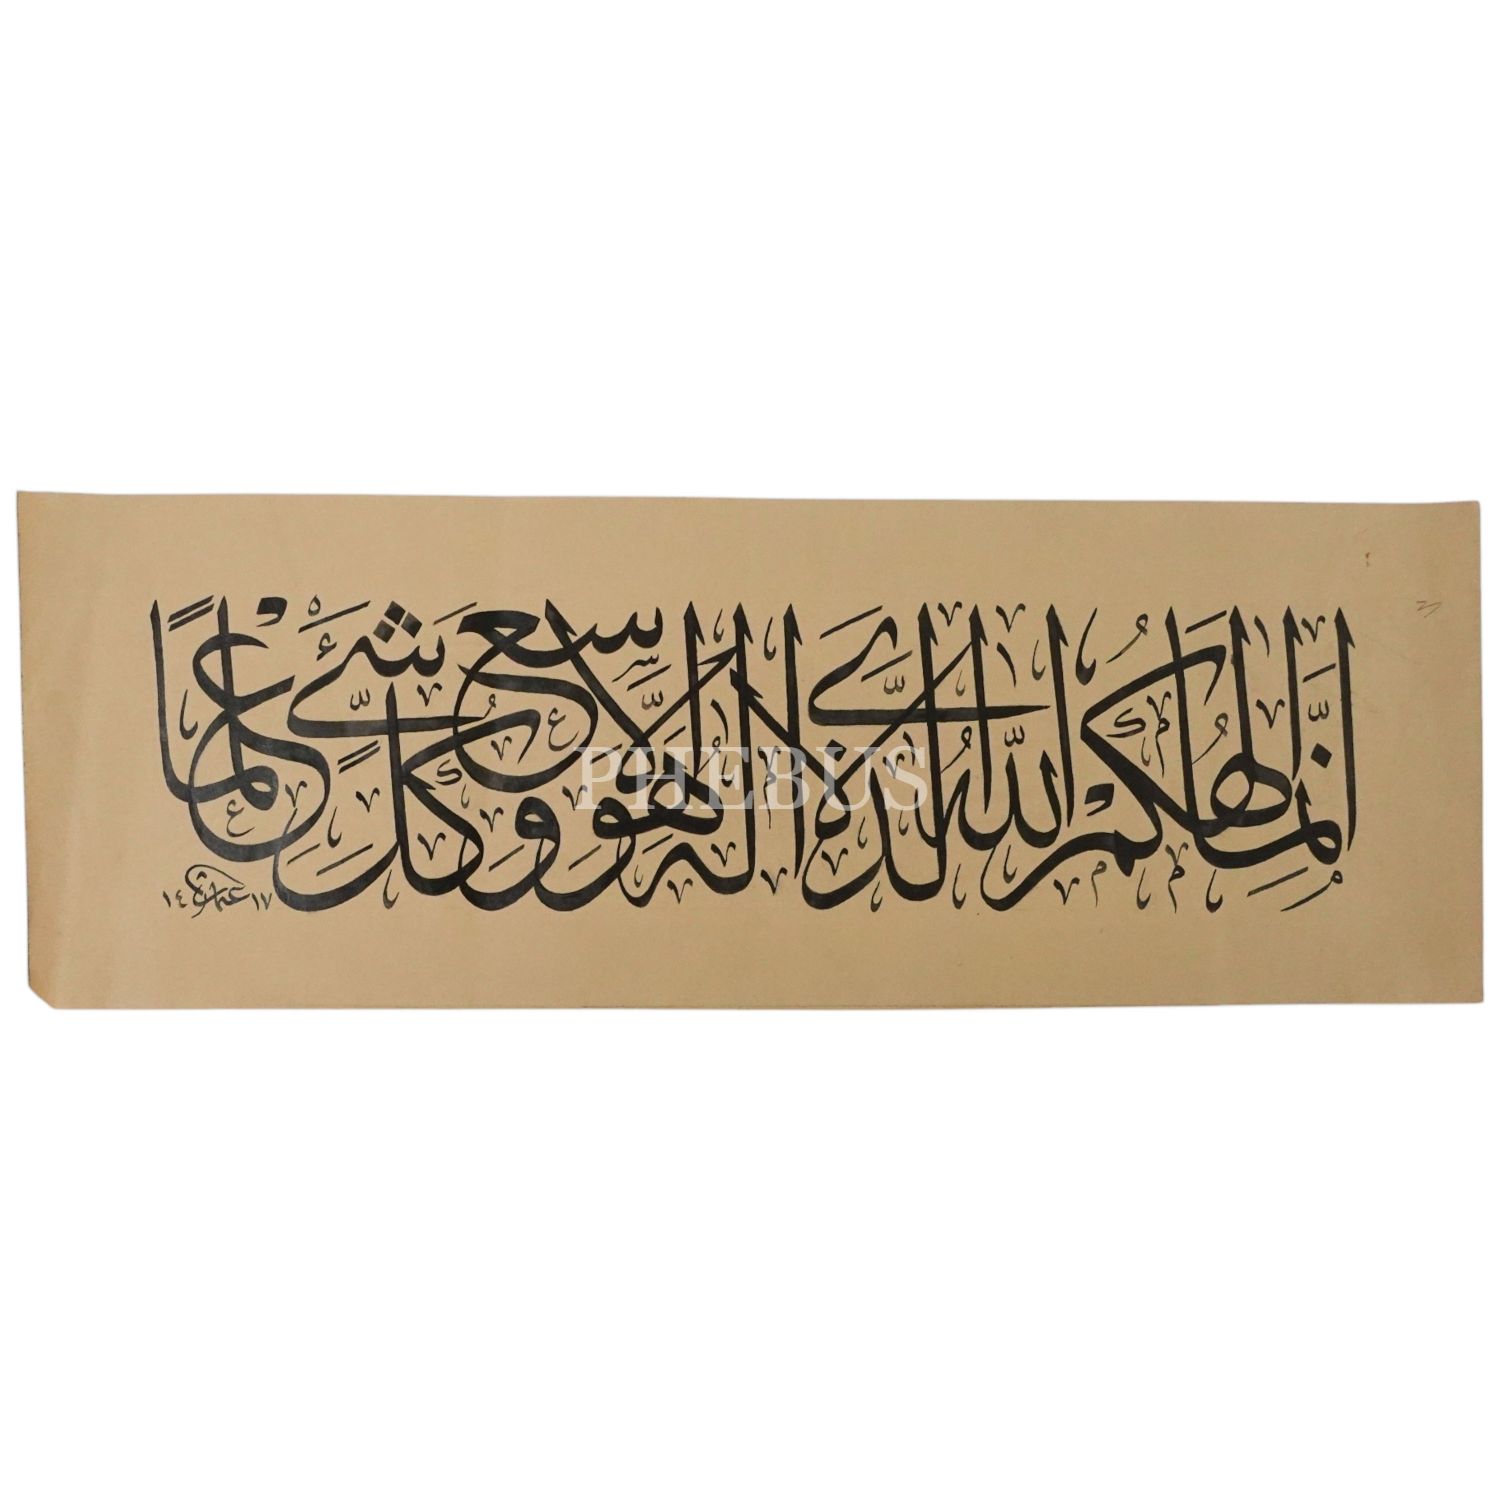 إِنَّمَا إِلٰهُكُمُ اللّٰهُ الَّذِي لَا إِلٰهَ إِلَّا هُوَ وَسِعَ كُلَّ شَيْءٍ عِلْمًا
١٤١٧
PHEBUS